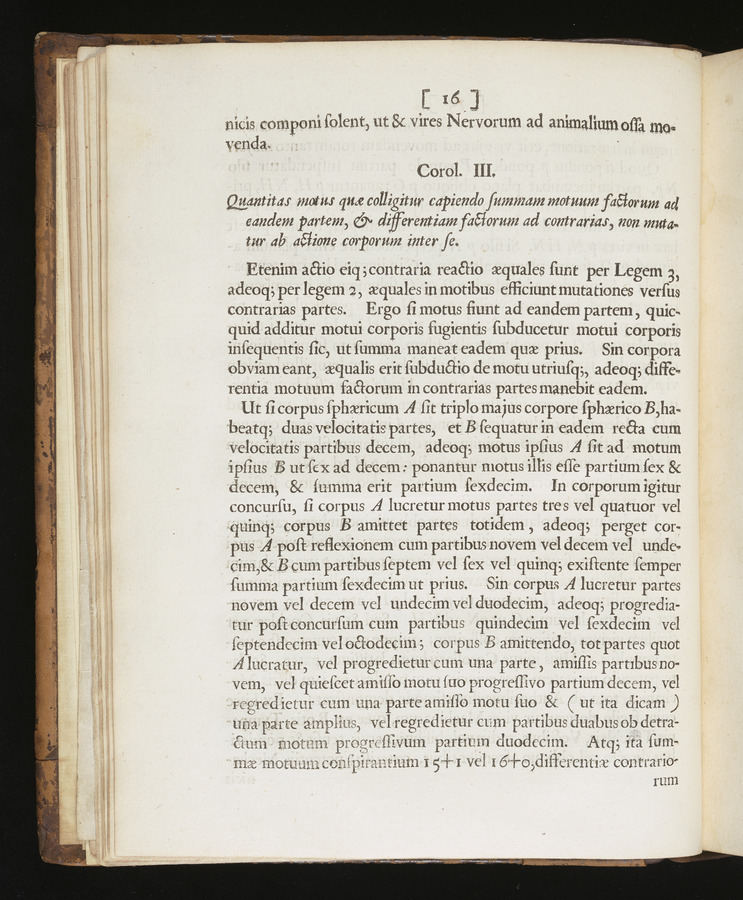 [ 16 ]
nicis componi ſolent, ut & vires Nervorum ad animalium oſſa mo-
venda.
Corol. III.
Quantitas motus quæ colligitur capiendo ſummam motuum factorum ad
eandem partem, & differentiam factorum ad contrarias, non muta-
tur ab actione corporum inter ſe.
Etenim actio eiq; contraria reactio æquales ſunt per Legem 3,
adeoq; per legem 2, æquales in motibus efficiunt mutationes verſus
contrarias partes. Ergo ſi motus fiunt ad eandem partem, quic-
quid additur motui corporis fugientis ſubducetur motui corporis
inſequentis ſic, ut ſumma maneat eadem quæ prius. Sin corpora
obviam eant, æqualis erit ſubductio de motu utriuſq;, adeoq; diffe-
rentia motuum factorum in contrarias partes manebit eadem.
Ut ſi corpus ſphæricum A ſit triplo majus corpore ſphærico B, ha-
beatq; duas velocitatis partes, et B ſequatur in eadem recta cum
velocitatis partibus decem, adeoq; motus ipſius A ſit ad motum
ipſius B ut ſex ad decem: ponantur motus illis eſſe partium ſex &
decem, & ſumma erit partium ſexdecim. In corporum igitur
concurſu, ſi corpus A lucretur motus partes tres vel quatuor vel
quinq; corpus B amittet partes totidem, adeoq; perget cor-
pus A poſt reflexionem cum partibus novem vel decem vel unde-
cim, & B cum partibus ſeptem vel ſex vel quinq; exiſtente ſemper
ſumma partium ſexdecim ut prius. Sin corpus A lucretur partes
novem vel decem vel undecim vel duodecim, adeoq; progredia-
tur poſt concurſum cum partibus quindecim vel ſexdecim vel
ſeptendecim vel octodecim; corpus B amittendo, tot partes quot
A lucratur, vel progredietur cum una parte, amiſſis partibus no-
vem, vel quieſcet amiſſo motu ſuo progreſſivo partium decem, vel
regredietur cum una parte amiſſo motu ſuo & ( ut ita dicam )
una parte amplius, vel regredietur cum partibus duabus ob detra-
ctum motum progreſſivum partium duodecim. Atq; ita ſum-
mæ motuum conſpirantium 15+1 vel 16+0, differentiæ contrario-
rum